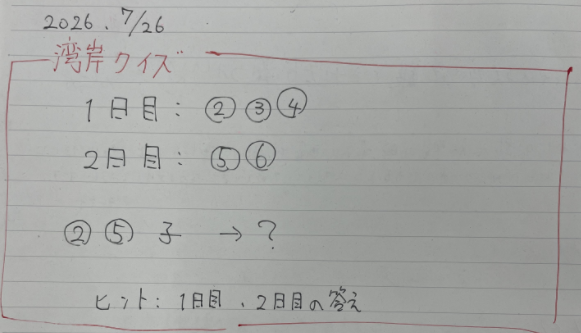 2026.7/26
湾岸クイズ
1日目:②③④
2日目:⑤⑥
②⑤子→?
ヒント:1日目、2日目の答え